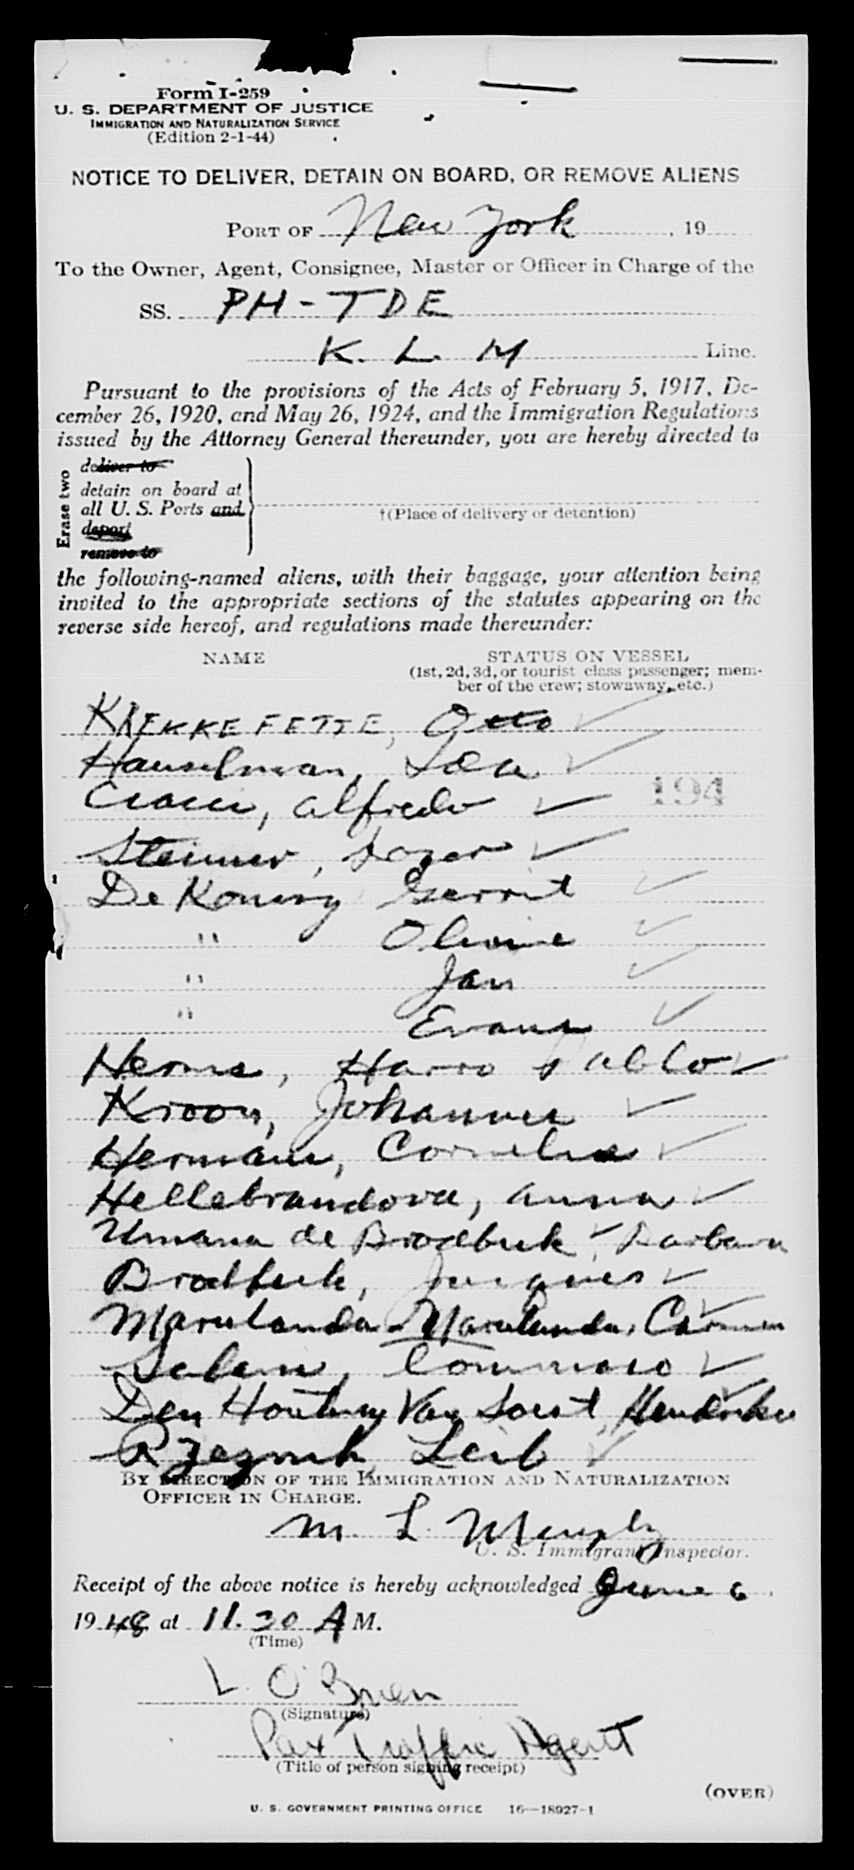 Form I-259
U. S. DEPARTMENT OF JUSTICE
IMMIGRATION AND NATURALIZATION SERVICE
(Edition 2-1-44)
NOTICE TO DELIVER, DETAIN ON BOARD, OR REMOVE ALIENS
PORT OF New York , 19
To the Owner, Agent, Consignee, Master or Officer in Charge of the
SS. PH-TDE
K. L. M Line.
Pursuant to the provisions of the Acts of February 5, 1917, De-
cember 26, 1920, and May 26, 1924, and the Immigration Regulations
issued by the Attorney General thereunder, you are hereby directed to
Erase two
deliver to
detain on board at
all U. S. Ports and
deport
remove to
†(Place of delivery or detention)
the following-named aliens, with their baggage, your attention being
invited to the appropriate sections of the statutes appearing on the
reverse side hereof, and regulations made thereunder:
NAME STATUS ON VESSEL
(1st, 2d, 3d, or tourist class passenger; mem-
ber of the crew; stowaway, etc.)
Otto ✓
Hauselman, ✓
Alfredo ✓
194
Steiner, ✓
De Koning Gerrit ✓
" ✓
" Jan ✓
" ✓
Herms, Harro Pablo ✓
Kroon, Johannes ✓
Hermans, Cornelis ✓
Hellebrandova, Anna ✓
Umana de Brodbeck, ✓ Barbara
Brodbeck, Jacques ✓
Marulanda - Marulanda, Carmen ✓
Tommaso ✓
Den Houting Van Soest, ✓
Leib ✓
BY DIRECTION OF THE IMMIGRATION AND NATURALIZATION
OFFICER IN CHARGE.
M. L. Murphy
U. S. Immigrant Inspector.
Receipt of the above notice is hereby acknowledged June 6 ,
1948 at 11.30 A M.
(Time)
L. O'Brien
(Signature)
Pax Traffic Agent
(Title of person signing receipt)
(OVER)
U. S. GOVERNMENT PRINTING OFFICE 16—18927-1